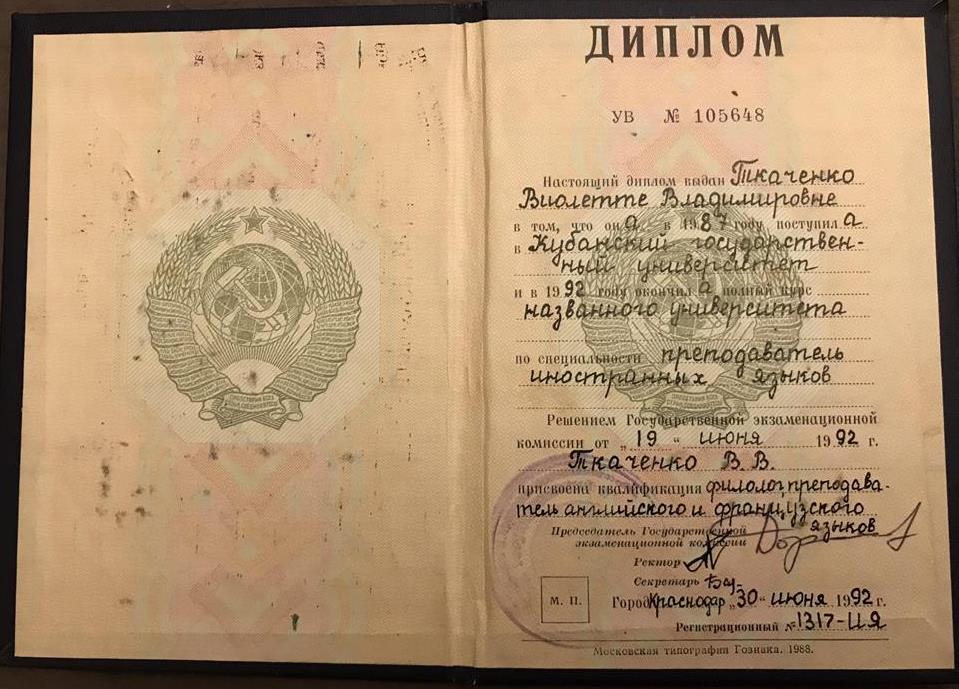 ДИПЛОМ
УВ № 105648
Настоящий диплом выдан Ткаченко
Виолетте Владимировне
в том, что она в 1987 году поступила
в Кубанский государствен-
ный университет
и в 1992 году окончила полный курс
названного университета
по специальности преподаватель
иностранных языков
Решением Государственной экзаменационной
комиссии от „19“ июня 1992 г.
Ткаченко В. В.
присвоена квалификация филолог, преподава-
тель английского и французского
языков
Председатель Государственной
экзаменационной комиссии
Ректор
Секретарь
М. П.
Город Краснодар „30“ июня 1992 г.
Регистрационный № 1317-ИЯ
Московская типография Гознака. 1988.